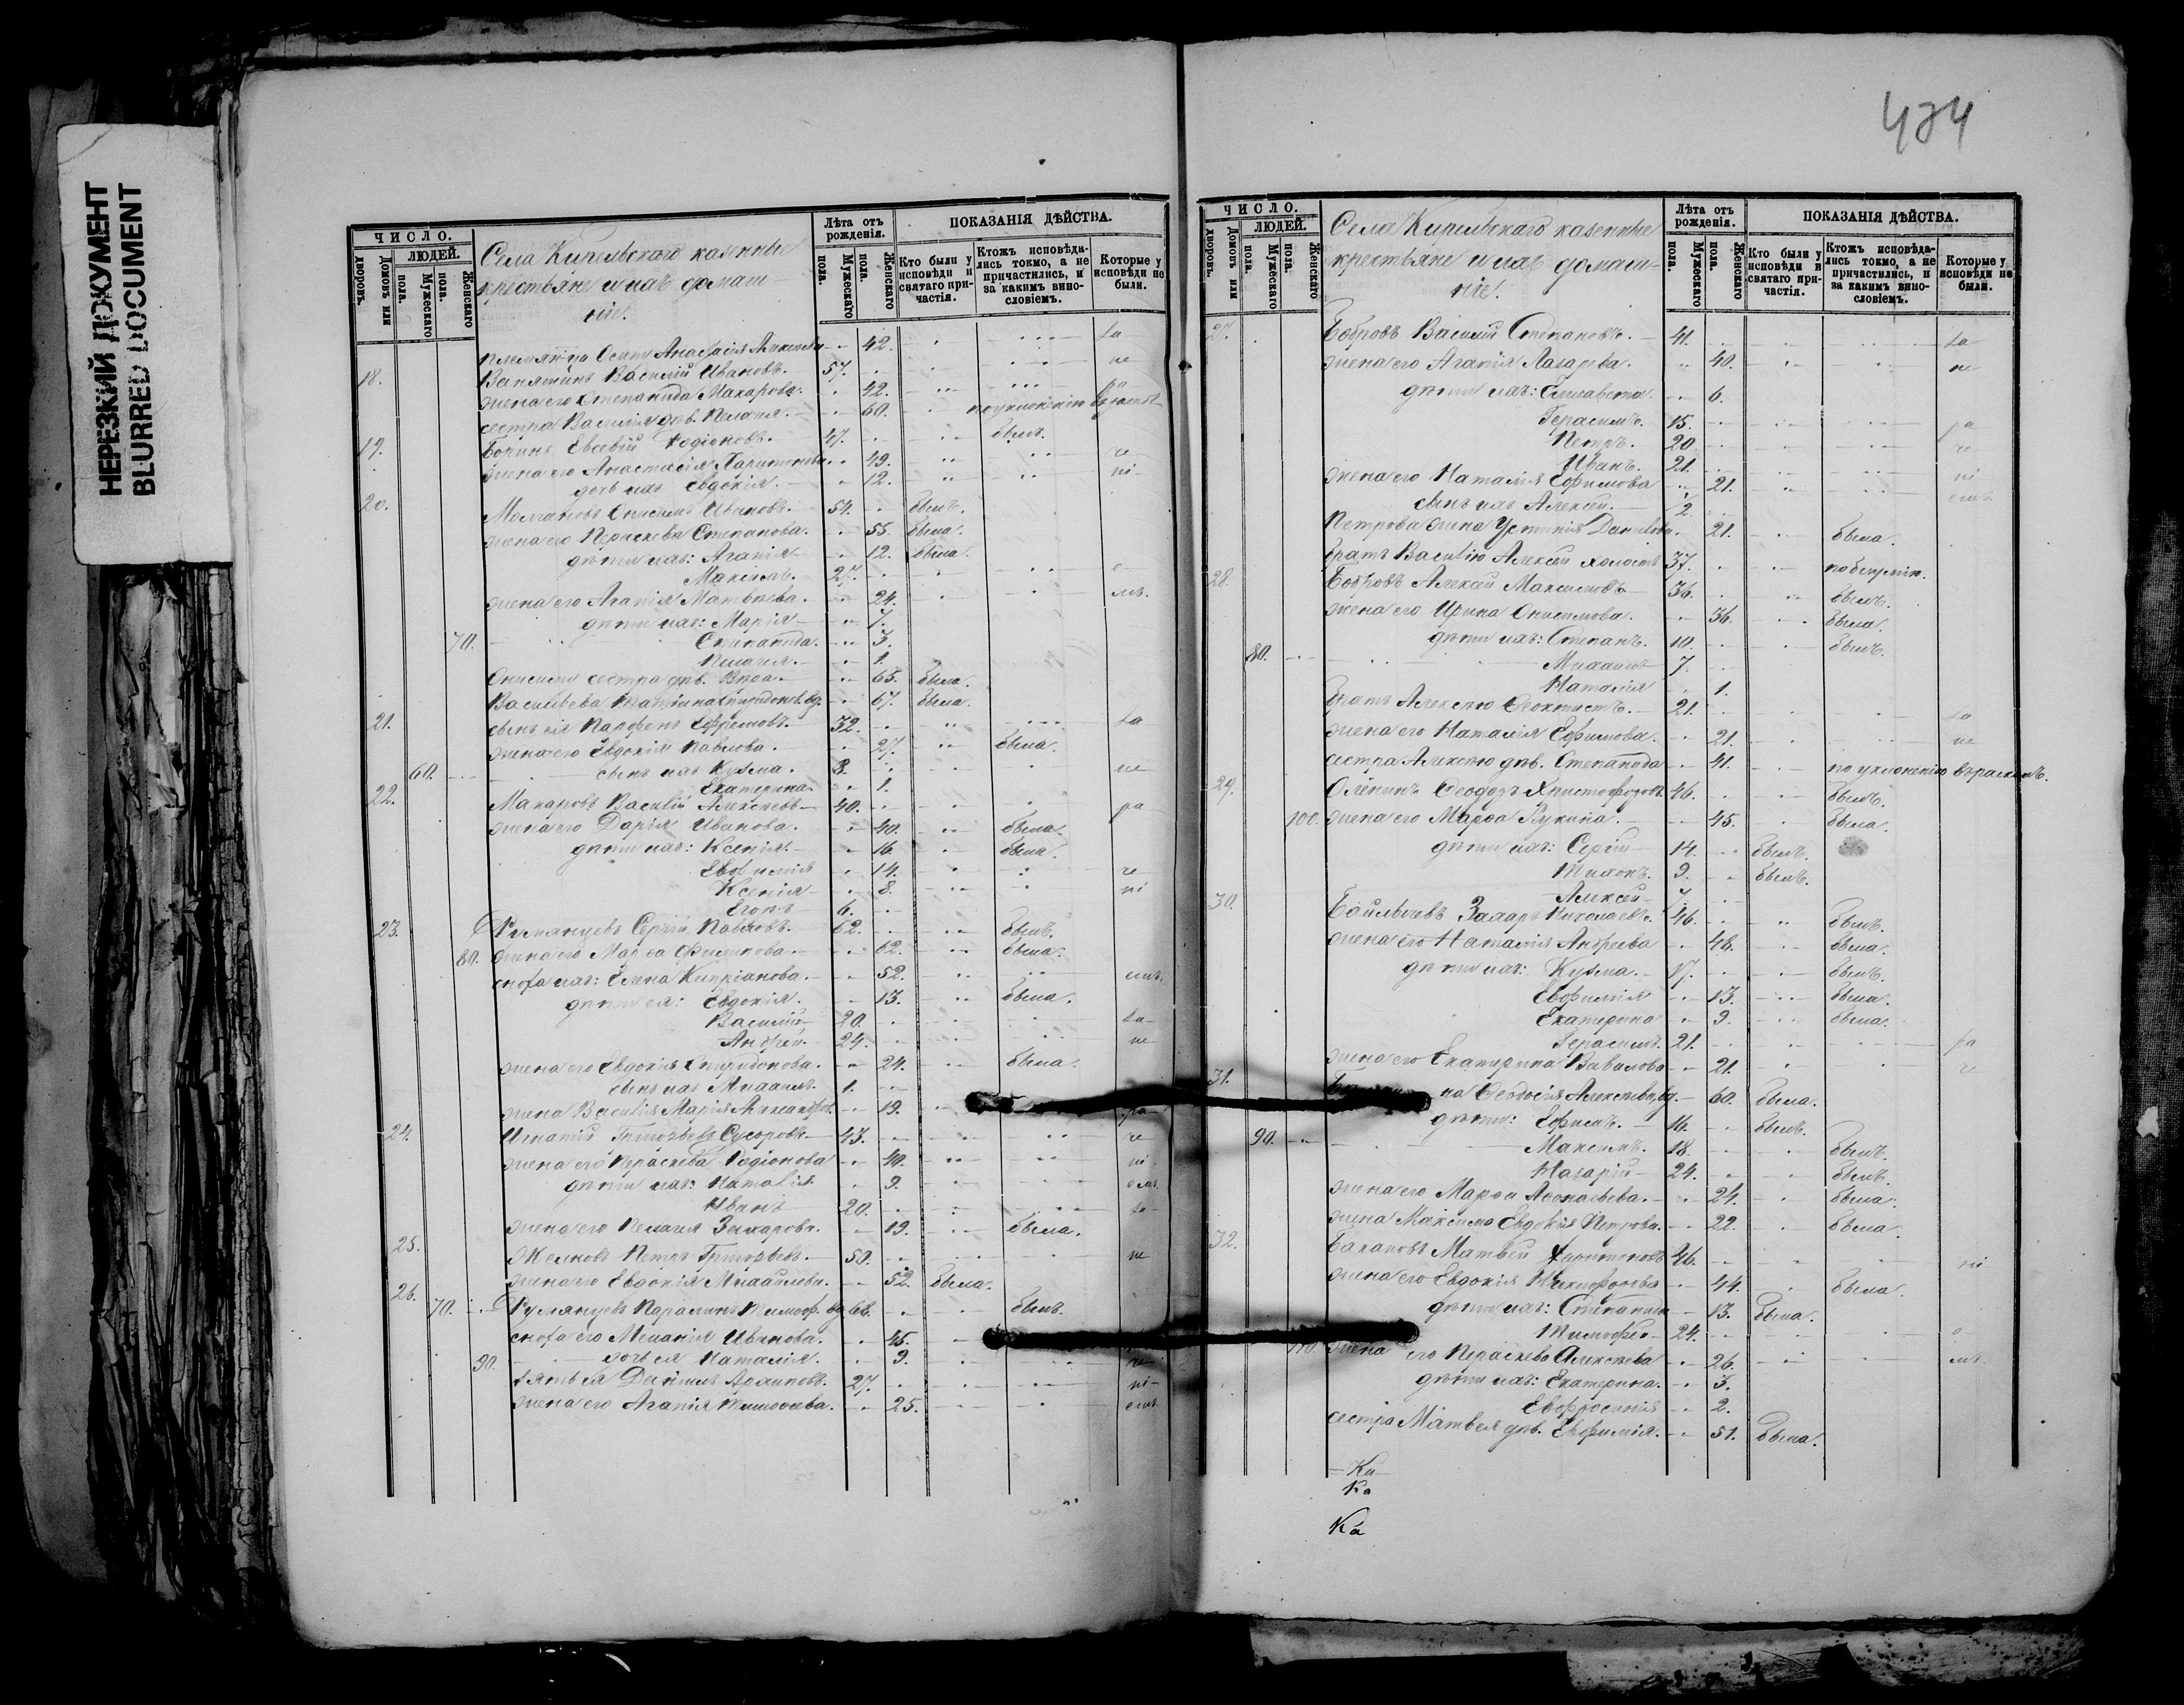 НЕРЕЗКИЙ ДОКУМЕНТ
BLURRED DOCUMENT
ЧИСЛО.
ЛЮДЕЙ.
Домовъ или дворовъ.
Мужескаго пола.
Женскаго пола.
Села Кипельскаго казенные
крестьяне и ихъ домаш-
ніе.
Лѣта отъ рожденія.
Мужескаго пола.
Женскаго пола.
ПОКАЗАНІЯ ДѢЙСТВА.
Кто были у исповѣди и святаго причастія.
Ктожъ исповѣда-
лись токмо, а не
причастились, и
за какимъ вино-
словіемъ.
Которые у исповѣди не были.
42. за
18. Василій Ивановъ. 57. не
жена его Степанида Макарова. 42. ра
сестра Василія дѣв. Пелагія. 60. по уклоненію
19. Бочинъ Евсевій Родіоновъ. 47. былъ.
жена его Анастасія Харитонова. 49. че
дочь ихъ Евдокія. 12. ні
20. Молчановъ Онисимъ Ивановъ. 54. былъ.
жена его Параскева Степанова. 55. была.
дѣти ихъ: Агапія 12. была.
Максимъ. 27. е
жена его Агапія Матвѣева. 24. мъ.
дѣти ихъ: Марія 7.
70. Степанида. 3.
Пелагія. 1.
Онисима сестра дѣв. 65. была.
Васильева 67. была.
21. сынъ ея Парфенъ Ефремовъ. 32. за
жена его Евдокія Павлова. 27. была.
60. сынъ ихъ Кузма. 3. не
Екатерина. 1.
22. Макаровъ Василій Алексѣевъ 40. ра
жена его Дарія Иванова. 40. была.
дѣти ихъ: Ксенія. 16. была.
Евфимія 14. че
Ксенія 8. ні
Егоръ 6.
23. Румянцевъ Сергій Павловъ. 62. былъ.
80. жена его Марѳа Филипова. 62. была.
сноха ихъ: Елена Кипріанова. 52. емъ.
дѣти ея: Евдокія. 13. была.
Василій 20. за
Андрей. 24. не
жена его Евдокія Спиридонова. 24. была.
сынъ ихъ Михаилъ. 1.
жена Василія Марія Александров. 19. ра
24. Игнатій Григорьевъ Сусоровъ 43. че
жена его Параскева Родіонова 40. ні
дѣти ихъ: Наталія 9. емъ.
Иванъ 20. за
жена его Пелагія Захарова. 19. была.
25. Желновъ Петръ Григорьевъ. 50. не
жена его Евдокія Михайлова. 52. была.
26. 70. Румянцевъ Тимоф. вд. 66. былъ.
сноха его Меланія Иванова. 45.
90. дочь ея Наталія. 9. че
зять ея Даніилъ Архиповъ. 27. ні
жена его Агапія Тимоѳеева. 25. емъ.
434
ЧИСЛО.
ЛЮДЕЙ.
Домовъ или дворовъ.
Мужескаго пола.
Женскаго пола.
Села Кипельскаго казенные
крестьяне и ихъ домаш-
ніе.
Лѣта отъ рожденія.
Мужескаго пола.
Женскаго пола.
ПОКАЗАНІЯ ДѢЙСТВА.
Кто были у исповѣди и святаго причастія.
Ктожъ исповѣда-
лись токмо, а не
причастились, и
за какимъ вино-
словіемъ.
Которые у исповѣди не были.
27. Бобровъ Василій Степановъ. 41. за
жена его Агапія Лазарева. 40. не
дѣти ихъ: Елисавета. 6.
Герасимъ. 15. ра
Петръ. 20. че
Иванъ. 21. ні
жена его Наталія Ефимова 21. емъ
сынъ ихъ Алексѣй. 2.
Петрова жена Устинія Данилова. 21. была.
братъ Василію Алексѣй холостъ 37.
28. Бобровъ Алексѣй Максимовъ 36. былъ.
жена его Ирина Онисимова. 36. была.
дѣти ихъ: Степанъ. 10. былъ.
80. Михаилъ 7.
Наталія 1.
братъ Алексѣю Ѳеоктистъ. 21. за
жена его Наталія Ефимова. 21. не
сестра Алексѣю дѣв. Степанида 41. по уклоненію въ расколъ.
29. Олёнинъ Ѳеодоръ Христофоровъ 46. былъ.
100. жена его Марѳа Лукина. 45. была.
дѣти ихъ: Сергій 14. былъ.
Тихонъ. 9. былъ.
Алексѣй 7.
30. Захаръ Николаевъ. 46. былъ.
жена его Наталія Андреева 46. была.
дѣти ихъ: Кузма. 17. былъ.
Евфимія 13. была.
Екатерина 9. была.
Герасимъ. 21. ра
жена его Екатерина Вавилова 21. че
31. на Ѳеодосія Алексѣева, вд. 60. была.
дѣти: Ефимъ. 16. былъ.
90. Максимъ. 18. былъ.
Назарій 24. былъ.
жена его Марѳа Аѳонасьева. 24. была.
жена Максима Евдокія Петрова. 22. была.
32. Бахановъ Матвей Харитоновъ 46. ні
жена его Евдокія Никифорова 44. была.
дѣти ихъ: Степанида 13. была.
Тимоѳей 24. е
110. жена его Параскева Алексѣева 26. мъ.
дѣти ихъ: Екатерина. 5.
Евфросинія 2.
сестра Матвея дѣв. Евфимія. 51. была.
Ка
Ка
Ка